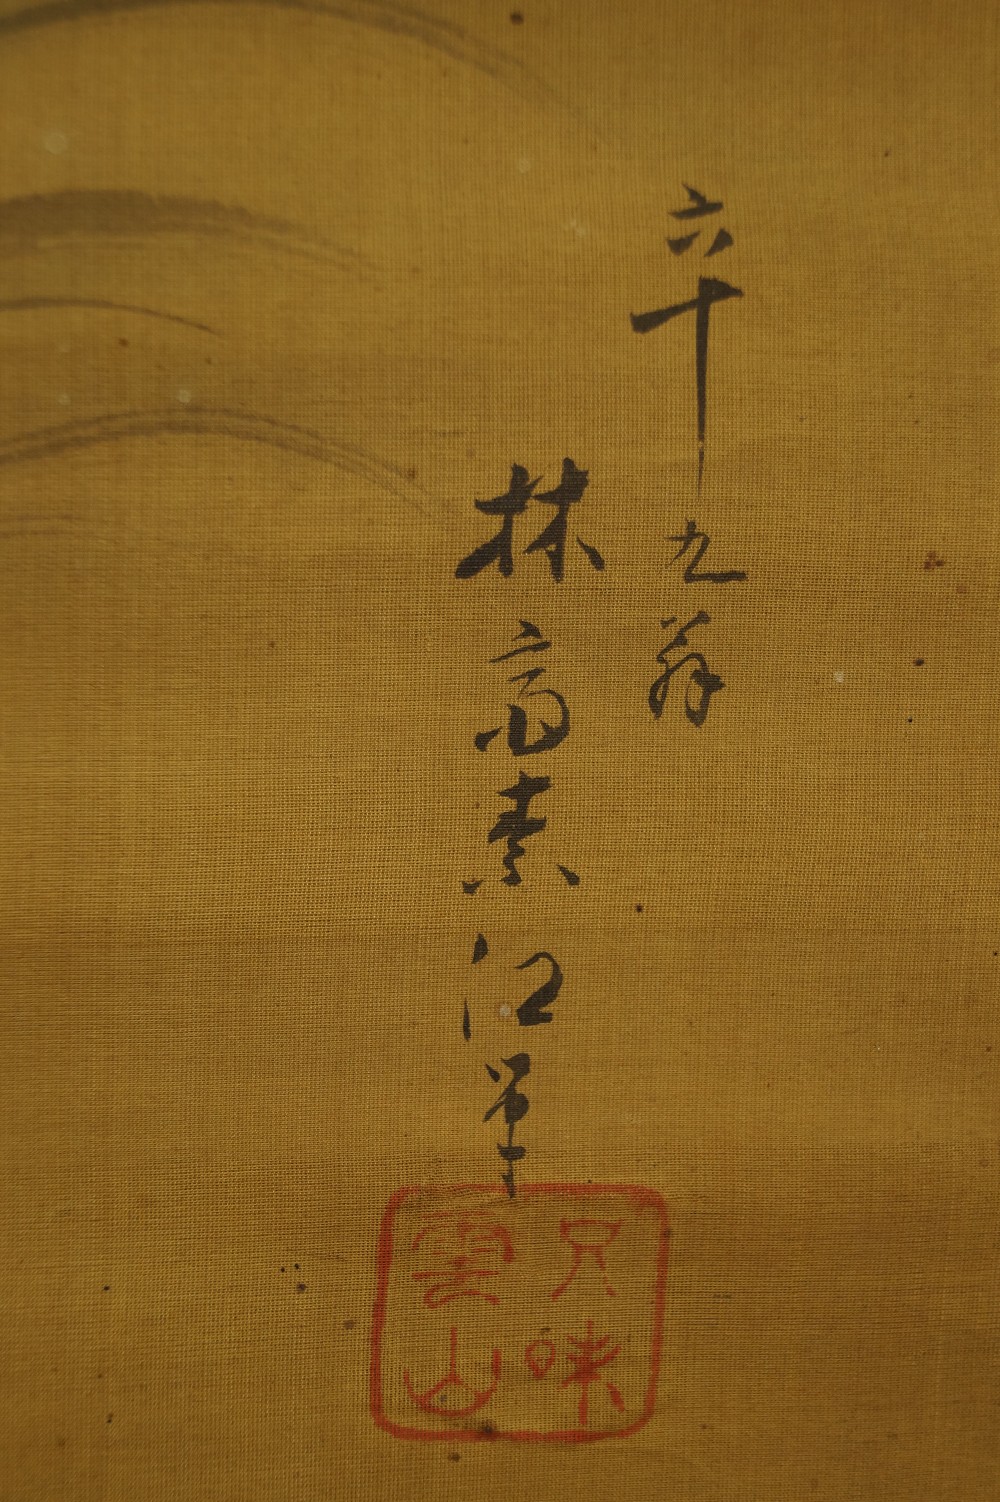 六十九翁
林斎素江筆
只咊
雲山